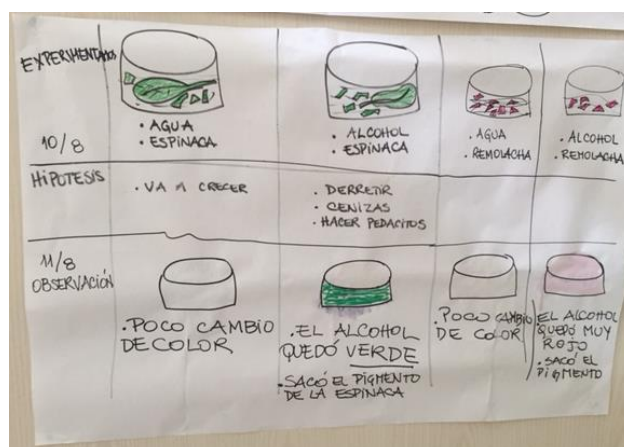 EXPERIMENTAMOS
10/8
• AGUA
• ESPINACA
• ALCOHOL
• ESPINACA
• AGUA
• REMOLACHA
• ALCOHOL
• REMOLACHA
HIPOTESIS
• VA A CRECER
• DERRETIR
• CENIZAS
• HACER PEDACITOS
11/8
OBSERVACIÓN
• POCO CAMBIO
DE COLOR
• EL ALCOHOL
QUEDÓ VERDE
• SACÓ EL PIGMENTO
DE LA ESPINACA
• POCO CAMBIO
DE COLOR
EL ALCOHOL
QUEDÓ MUY
ROJO
• SACÓ EL
PIGMENTO